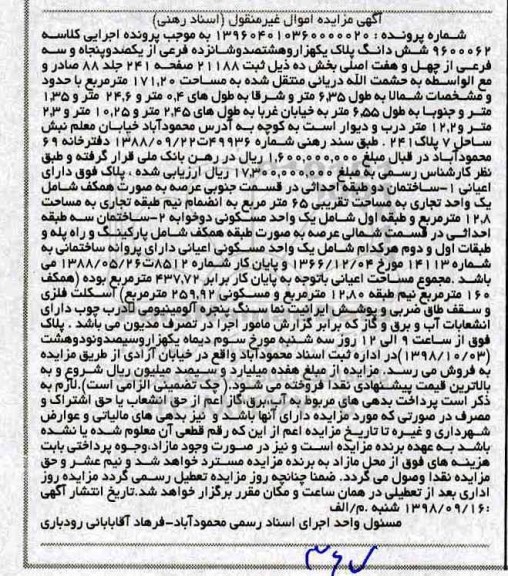 آگهی مزایده اموال غیرمنقول (اسناد رهنی)
شماره پرونده : ۱۳۹۶۰۴۰۱۰۳۶۰۰۰۰۰۲۰ به موجب پرونده اجرایی کلاسه
۹۶۰۰۰۶۲ شش دانگ پلاک یکهزاروهشتصدوشانزده فرعی از یکصدوپنجاه و سه
فرعی از چهل و هفت اصلی بخش ده ذیل ثبت ۲۱۱۸۸ صفحه ۲۴۱ جلد ۸۸ صادر و
مع الواسطه به حشمت الله دریائی منتقل شده به مساحت ۱۷۱,۲۰ مترمربع با حدود
و مشخصات شمالا به طول ۶,۳۵ متر و شرقا به طول های ۰,۴ متر و ۲۴,۶ متر و ۱,۳۵
متر و جنوبا به طول ۶,۵۵ متر به خیابان غربا به طول های ۲,۴۵ متر و ۱۰,۲۵ متر و ۲,۳
متر و ۱۲,۲ متر درب و دیوار است به کوچه به آدرس محمودآباد خیابان معلم نبش
ساحل ۷ پلاک ۲۴۱ . طبق سند رهنی شماره ۴۹۹۳۶ت۱۳۸۸/۰۹/۲۲ دفترخانه ۶۹
محمودآباد در قبال مبلغ ۱,۶۰۰,۰۰۰,۰۰۰ ریال در رهن بانک ملی قرار گرفته و طبق
نظر کارشناس رسمی به مبلغ ۱۷,۳۰۰,۰۰۰,۰۰۰ ریال ارزیابی شده ، پلاک فوق دارای
اعیانی ۱-ساختمان دو طبقه احداثی در قسمت جنوبی عرصه به صورت همکف شامل
یک واحد تجاری به مساحت تقریبی ۶۵ متر مربع به انضمام نیم طبقه تجاری به مساحت
۱۲,۸ مترمربع و طبقه اول شامل یک واحد مسکونی دوخوابه ۲-ساختمان سه طبقه
احداثی در قسمت شمالی عرصه به صورت طبقه همکف شامل پارکینگ و راه پله و
طبقات اول و دوم هرکدام شامل یک واحد مسکونی اعیانی دارای پروانه ساختمانی به
شماره ۱۴۱۱۳ مورخ ۱۳۶۶/۱۲/۰۴ و پایان کار شماره ۸۵۱۲ت۱۳۸۸/۰۵/۲۶ می
باشد .مجموع مساحت اعیانی باتوجه به پایان کار برابر ۴۳۷,۷۲ مترمربع بوده (همکف
۱۶۰ مترمربع نیم طبقه ۱۲,۸۰ مترمربع و مسکونی ۲۵۹,۹۲ مترمربع) اسکلت فلزی
و سقف طاق ضربی و پوشش ایرانیت نما سنگ پنجره آلومینیومی درب چوب دارای
انشعابات آب و برق و گاز که برابر گزارش مامور اجرا در تصرف مدیون می باشد . پلاک
فوق از ساعت ۹ الی ۱۲ روز سه شنبه مورخ سوم دیماه یکهزاروسیصدونودوهشت
(۱۳۹۸/۱۰/۰۳)در اداره ثبت اسناد محمودآباد واقع در خیابان آزادی از طریق مزایده
به فروش می رسد. مزایده از مبلغ هفده میلیارد و سیصد میلیون ریال شروع و به
بالاترین قیمت پیشنهادی نقدا فروخته می شود.( چک تضمینی الزامی است).لازم به
ذکر است پرداخت بدهی های مربوط به آب،برق،گاز اعم از حق انشعاب یا حق اشتراک و
مصرف در صورتی که مورد مزایده دارای آنها باشد، و نیز بدهی های مالیاتی و عوارض
شهرداری و غیره تا تاریخ مزایده اعم از این که رقم قطعی آن معلوم شده یا نشده
باشد به عهده برنده مزایده است و نیز در صورت وجود مازاد،وجوه پرداختی بابت
هزینه های فوق از محل مازاد به برنده مزایده مسترد خواهد شد و نیم عشر و حق
مزایده نقدا وصول می گردد. ضمنا چنانچه روز مزایده تعطیل رسمی گردد مزایده روز
اداری بعد از تعطیلی در همان ساعت و مکان مقرر برگزار خواهد شد.تاریخ انتشار آگهی
:۱۳۹۸/۰۹/۱۶ شنبه .م/الف
مسئول واحد اجرای اسناد رسمی محمودآباد-فرهاد آقابابائی رودباری